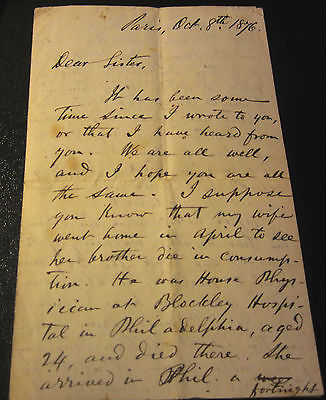 Paris, Oct. 8th 1876.
Dear Sister,
It has been some
time since I wrote to you,
or that I have heard from
you. We are all well,
and I hope you are all
the same. I suppose
you know that my wife
went home in April to see
her brother die in consump-
tion. He was House Phys-
ician at Blockley Hospi-
tal in Philadelphia, aged
24, and died there. She
arrived in Phil. a
fortnight